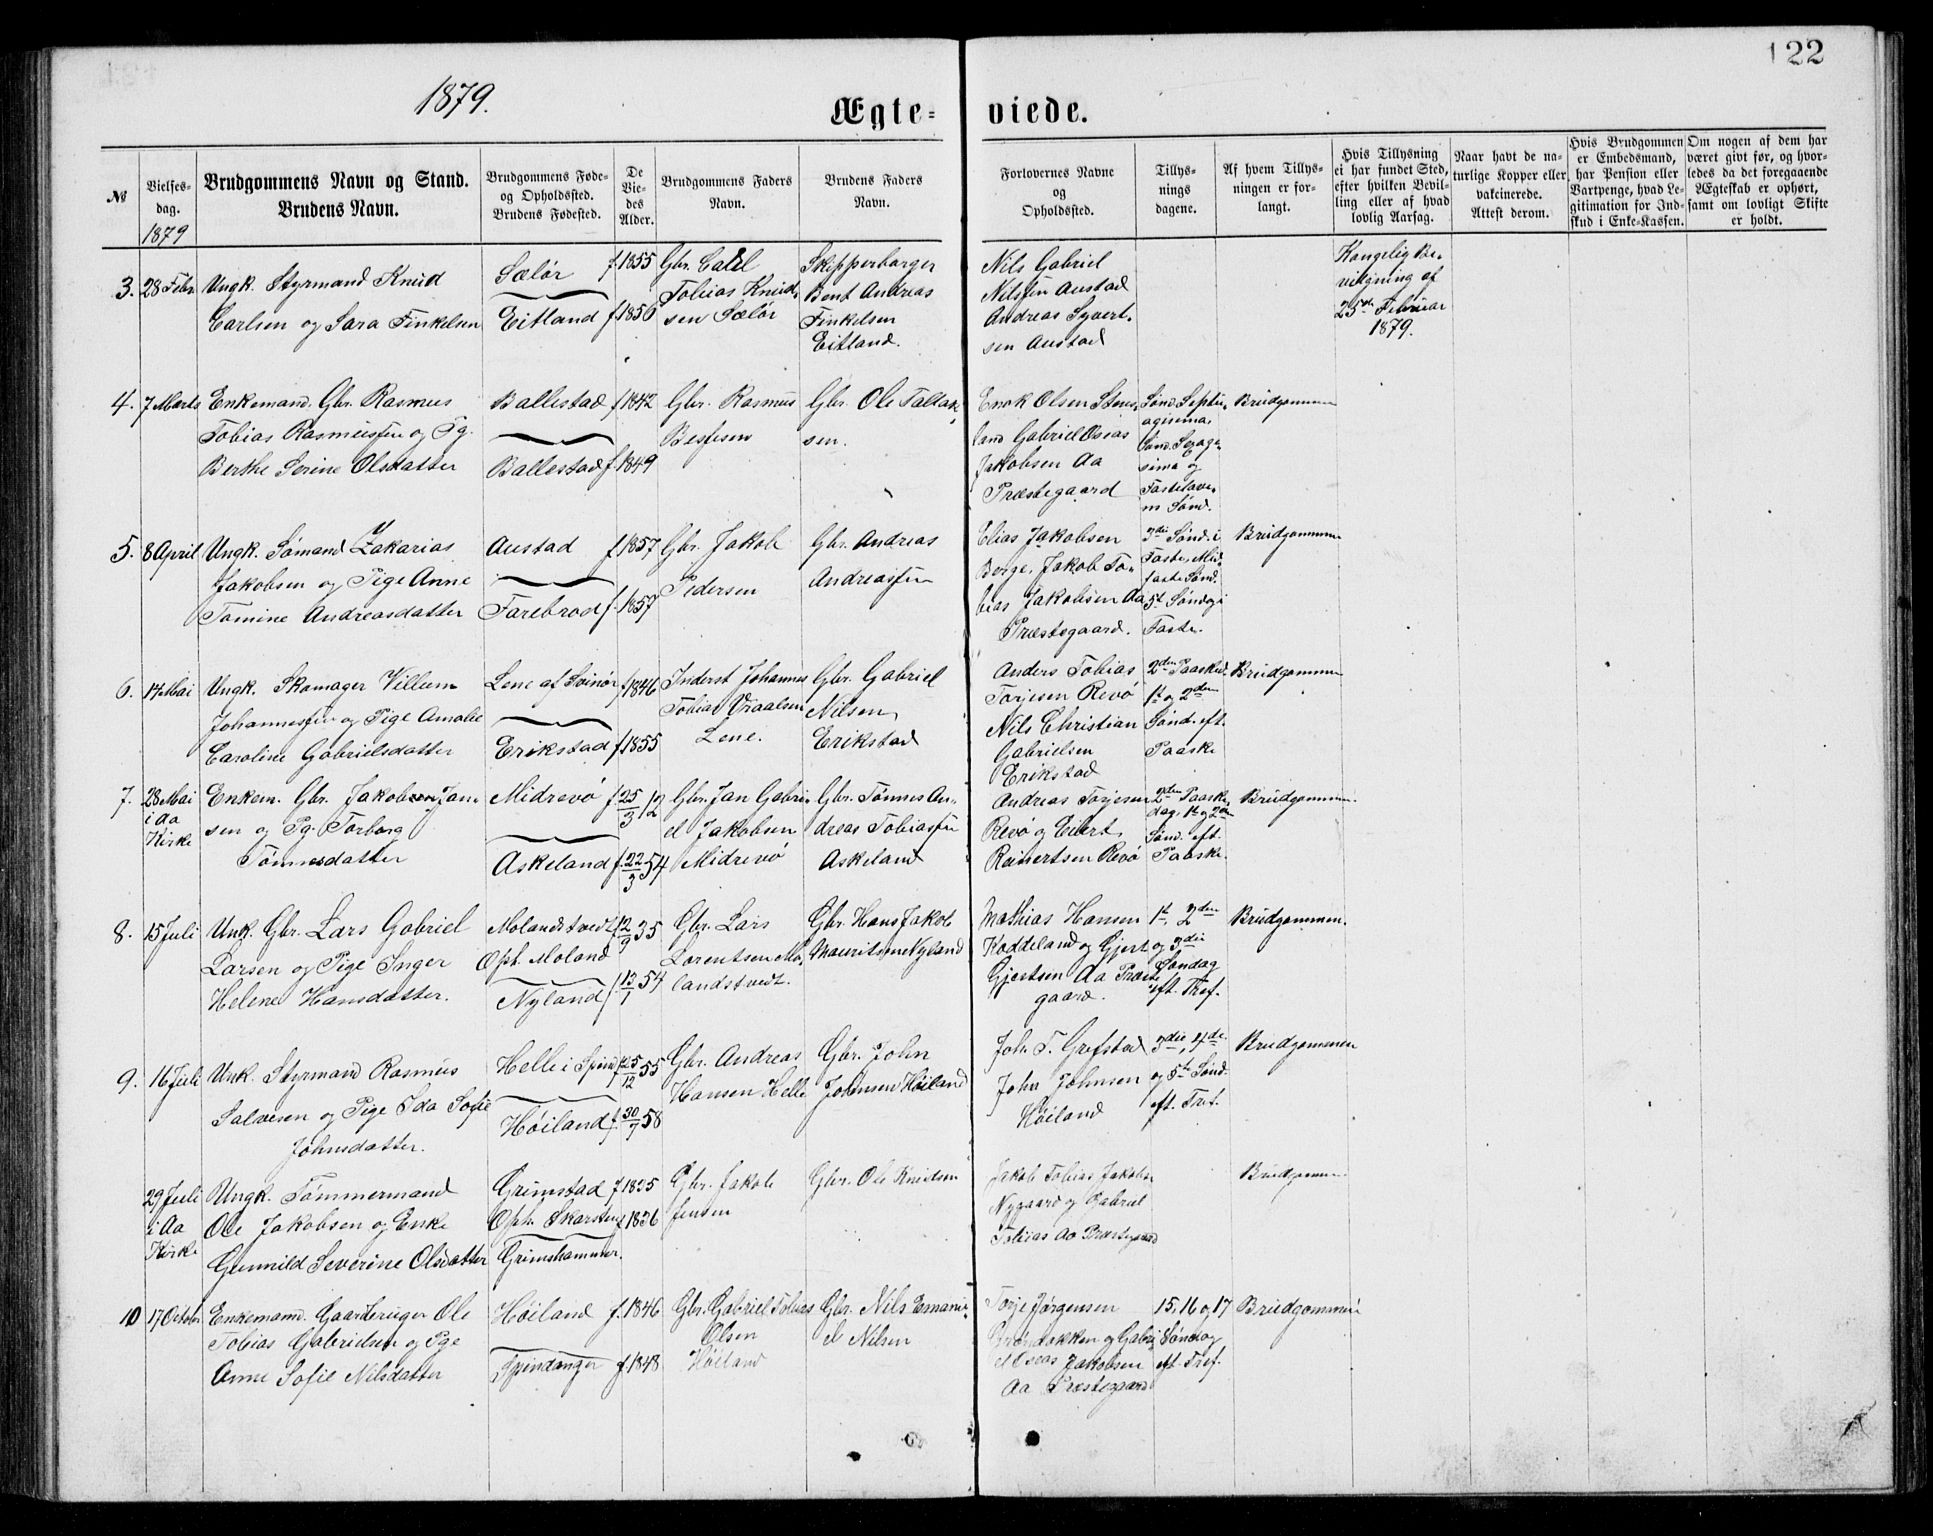 122
1879.
Ægte-viede.
№
Vielses-dag.
1879
Brudgommens Navn og Stand.
Brudens Navn.
Brudgommens Føde-
og Opholdssted.
Brudens Fødested.
De
Vie-
des
Alder.
Brudgommens Faders
Navn.
Brudens Faders
Navn.
Forlovernes Navne
og
Opholdssted.
Tillys-
nings
dagene.
Af hvem Tillys-
ningen er for-
langt.
Hvis Tillysning
ei har fundet Sted,
efter hvilken Bevil-
ling eller af hvad
lovlig Aarsag.
Naar havt de na-
turlige Kopper eller
vakcinerede.
Attest derom.
Hvis Brudgommen
er Embedsmand,
har Pension eller
Vartpenge, hvad Le-
gitimation for Ind-
skud i Enke-Kassen.
Om nogen af dem har
været givt før, og hvor-
ledes da det foregaaende
Ægteskab er ophørt,
samt om lovligt Skifte
er holdt.
3. 28 Febr.
Ungk. Styrmand Knud
Carlsen og Sara Finkelsen
Sælør
Eitland
f 1855
f 1856
Gbr. Carl
Tobias Knud-
sen Sælør
Skipperborger
Bent Andreas
Finkelsen
Eitland.
Nils Gabriel
Nilssen Austad
Andreas Syvert-
sen Austad
Kongelig Be-
vilgning af
25de Februar
1879.
4. 7 Marts
Enkemand, Gbr. Rasmus
Tobias Rasmussen og Pg.
Berthe Serine Olsdatter
Ballestad
Ballestad
f 1842
f. 1849
Gbr. Rasmus
Bessesen
Gbr. Ole Tallak-
sen.
Enok Olsen Stens-
land Gabriel Oseas
Jakobsen Aa
Præstegaard
Sønd. Septu-
agesima,
Sønd. Sexage-
sima og
Fastelave-
ns Sønd.
Brudgommen
5. 8 April
Ungk. Sømand Zakarias
Jakobsen og Pige Anne
Tomine Andreasdatter
Austad
Farebrod
f 1857
f. 1857
Gbr. Jakob
Pedersen
Gbr. Andreas
Andreassen
Elias Jakobsen
Berge, Jakob To-
bias Jakobsen Aa
Præstegaard.
3die Sønd. i
Faste, Mid-
faste Sønd.
5te Søndag i
Faste.
Brudgommen
6. 14 Mai
Ungk. Skomager Villum
Johannessen og Pige Amalie
Caroline Gabrielsdatter
Lene af Svinør
Erikstad
f. 1846
f. 1855
Inderst Johannes
Tobias Vraalsen
Lene.
Gbr. Gabriel
Nilsen
Erikstad
Anders Tobias
Torjesen Revø
Nils Christian
Gabrielsen
Erikstad
2den Paasked.
1ste og 2den
Sønd. eft.
Paaske
Brudgommen
7. 28 Mai
i Aa
Kirke
Enkem. Gbr. Jakob Jan-
sen og Pg. Torborg
Tønnesdatter
Midrevø
Askeland
f. 25/3 12
f. 22/3 54
Gbr. Jan Gabri-
el Jakobsen
Midrevø
Gbr. Tønnes An-
dreas Tobiassen
Askeland
Andreas Torjesen
Revø og Eilert
Reinertsen Revø
2den Paaske-
dag, 1ste og 2den
Sønd. eft.
Paaske.
Brudgommen.
8. 15 Juli
Unk. Gbr. Lars Gabriel
Larsen og Pige Inger
Helene Hansdatter.
Molandstvedt
Oph. Moland
Nyland
f. 12/9 35
f. 13/1 54
Gbr. Lars
Lorentsen Mo-
landstvedt.
Gbr. Hans Jakob
Mauritsen Nyland
Mathias Hansen
Koddeland og Gjert
Gjertsen Aa Præste-
gaard.
1ste, 2den
og 3die
Søndag
eft. Tref.
Brudgommen.
9. 16 Juli
Unk. Styrmand Rasmus
Salvesen og Pige Ida Sofie
Johnsdatter.
Helle i Spind
Høiland
f. 25/12 55
f. 30/7 58
Gbr. Andreas
Hansen Helle
Gbr. John
Johnsen Høiland
Joh. T. Grefstad
John Johnsen
Høiland
3die, 4de
og 5te Sønd.
eft. Tref.
Brudgommen
29 Juli
i Aa
Kirke
Ungk. Tømmermand
Ole Jakobsen og Enke
Gunnild Severine Olsdatter
Grimstad
Oph. Skarstein
Grimshammer.
f 1835
f 1836
Gbr. Jakob
Jensen
Gbr. Ole Knudsen
Jakob Tobias Jakobs.
Nygaard og Gabriel
Tobias Aa Præstegaard
Brudgommen
10 17 Octobr
Enkemand. Gaardbruger Ole
Tobias Gabrielsen og Pge
Anne Sofie Nilsdatter
Høiland
Spindanger
f. 1846
f. 1848
Gbr. Gabriel Tobias
Olsen
Høiland
Gbr. Nils Emanu-
el Nilsen
Torje Jørgensen
og Gabri-
el Oseas Jakobsen
Aa Præstegaard
15, 16 og 17
Søndag
eft. Tref.
Brudgommen